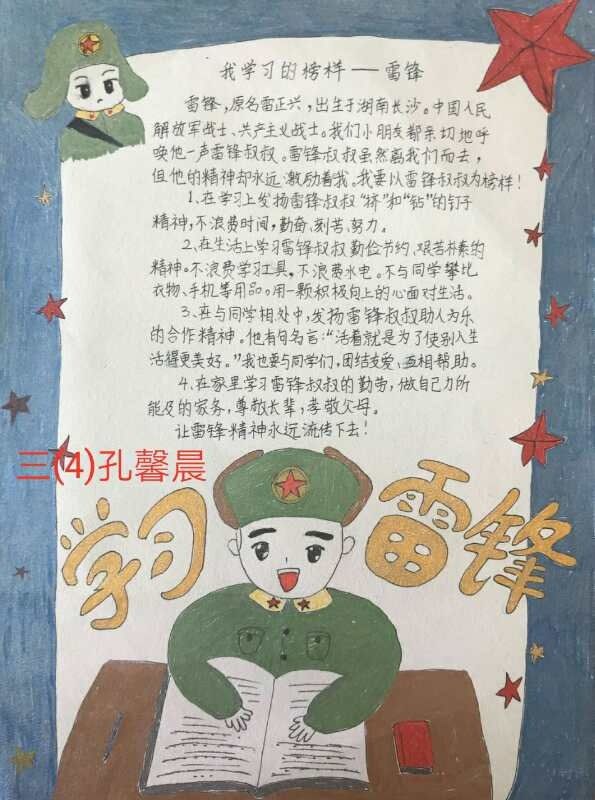 我学习的榜样——雷锋
雷锋，原名雷正兴，出生于湖南长沙。中国人民
解放军战士、共产主义战士。我们小朋友都亲切地呼
唤他一声雷锋叔叔。雷锋叔叔虽然离我们而去，
但他的精神却永远激励着我。我要以雷锋叔叔为榜样！
1、在学习上发扬雷锋叔叔“挤”和“钻”的钉子
精神，不浪费时间，勤奋、刻苦、努力。
2、在生活上学习雷锋叔叔勤俭节约、艰苦朴素的
精神。不浪费学习工具，不浪费水电。不与同学攀比
衣物、手机等用品。用一颗积极向上的心面对生活。
3、在与同学相处中，发扬雷锋叔叔助人为乐
的合作精神。他有句名言：“活着就是为了使别人生
活得更美好。”我也要与同学们，团结友爱、互相帮助。
4、在家里学习雷锋叔叔的勤劳，做自己力所
能及的家务，尊敬长辈，孝敬父母。
让雷锋精神永远流传下去！
三(4)孔馨晨
学习 雷锋